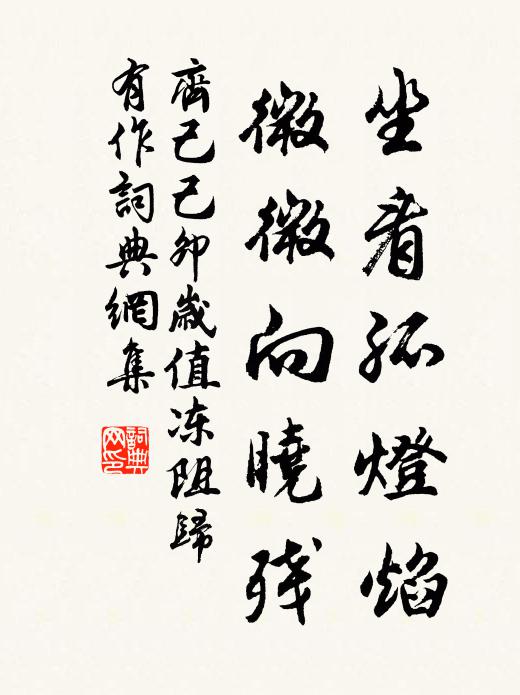 坐看孤燈焰
微微向曉残
齊己己卯歲值冻阻歸
有作詞典網集
詞典
网印